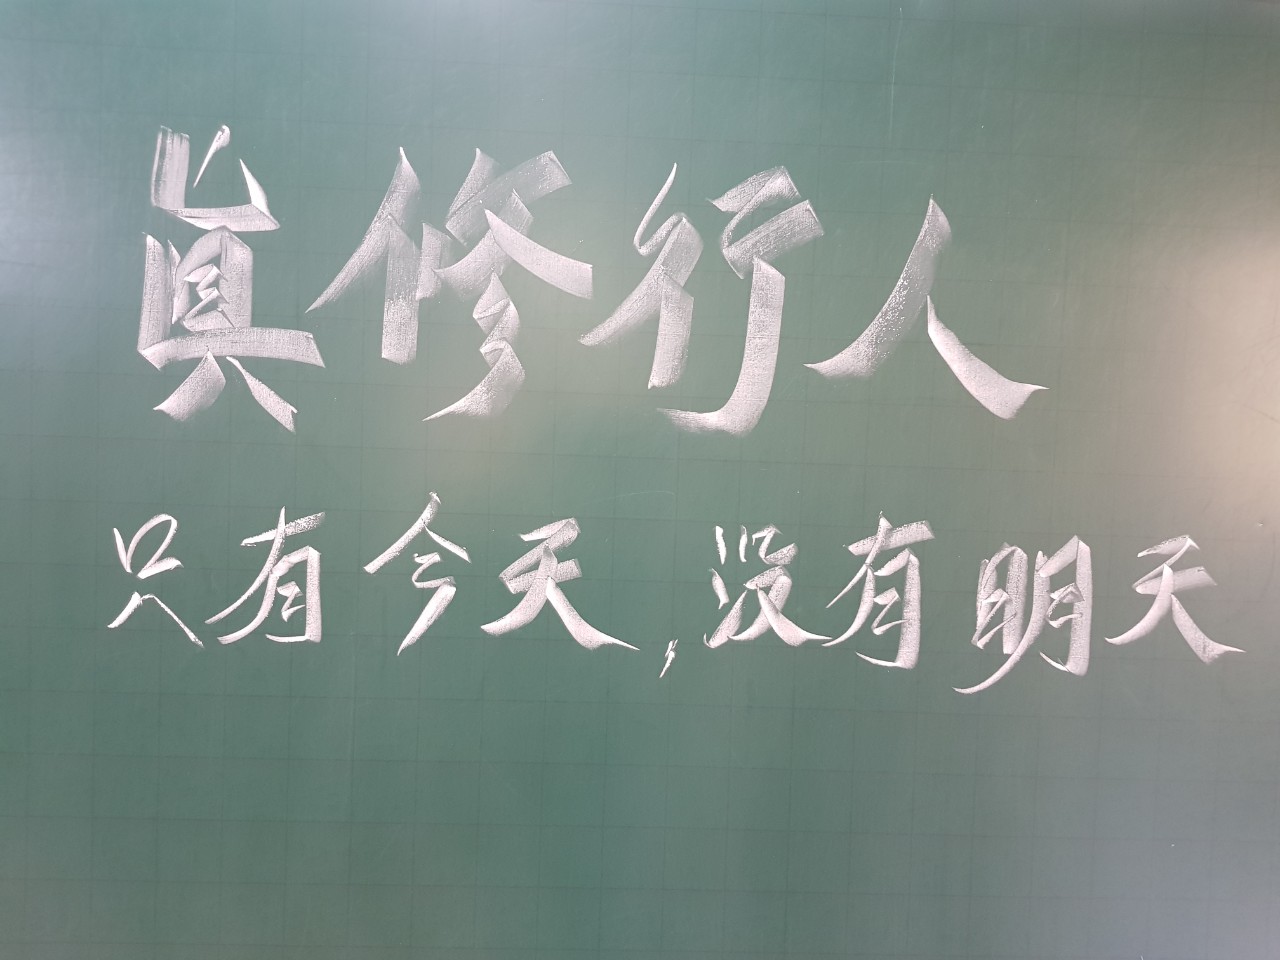 真修行人
只有今天,沒有明天